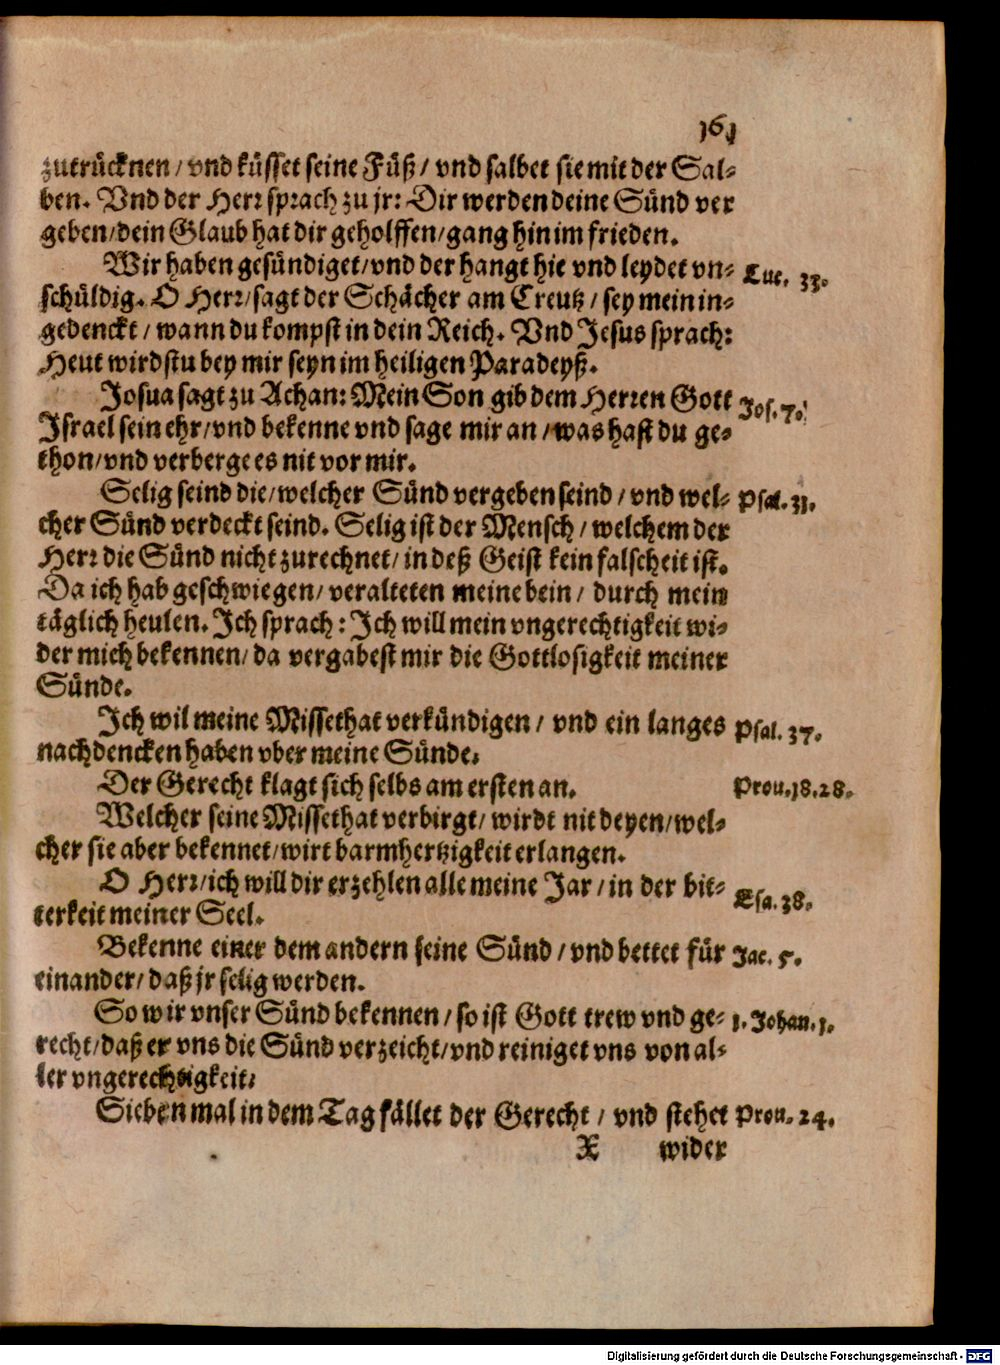 161
zutrücknen/ vnd küsset seine Füß/ vnd salbet sie mit der Sal-
ben. Vnd der Herr sprach zu jr: Dir werden deine Sünd ver
geben/dein Glaub hat dir geholffen/gang hin im frieden.
Wir haben gesündiget/vnd der hangt hie vnd leydet vn- Luc. 23.
schüldig. O Herr/sagt der Schächer am Creutz/ sey mein in-
gedenckt/ wann du kompst in dein Reich. Vnd Jesus sprach:
Heut wirdstu bey mir seyn im heiligen Paradeyß.
Josua sagt zu Achan: Mein Son gib dem Herren Gott Jos. 7.
Israel sein ehr/vnd bekenne vnd sage mir an/was hast du ge-
thon/vnd verberge es nit vor mir.
Selig seind die/welcher Sünd vergeben seind/ vnd wel- Psal. 31.
cher Sünd verdeckt seind. Selig ist der Mensch/ welchem der
Herr die Sünd nicht zurechnet/ in deß Geist kein falscheit ist.
Da ich hab geschwiegen/ veralteten meine bein/ durch mein
täglich heulen. Ich sprach: Ich will mein vngerechtigkeit wi-
der mich bekennen/ da vergabest mir die Gottlosigkeit meiner
Sünde.
Ich wil meine Missethat verkündigen/ vnd ein langes Psal. 37.
nachdencken haben vber meine Sünde.
Der Gerecht klagt sich selbs am ersten an. Prou. 18. 28.
Welcher seine Missethat verbirgt/ wirdt nit deyen/wel-
cher sie aber bekennet/wirt barmhertzigkeit erlangen.
O Herr/ich will dir erzehlen alle meine Jar/ in der bit- Esa. 38.
terkeit meiner Seel.
Bekenne einer dem andern seine Sünd/ vnd bettet für Jac. 5.
einander/ daß jr selig werden.
So wir vnser Sünd bekennen/ so ist Gott trew vnd ge- 1. Johan. 1.
recht/daß er vns die Sünd verzeicht/vnd reiniget vns von al-
ler vngerechtigkeit.
Sieben mal in dem Tag fället der Gerecht/ vnd stehet Prou. 24.
X wider
Digitalisierung gefördert durch die Deutsche Forschungsgemeinschaft - DFG